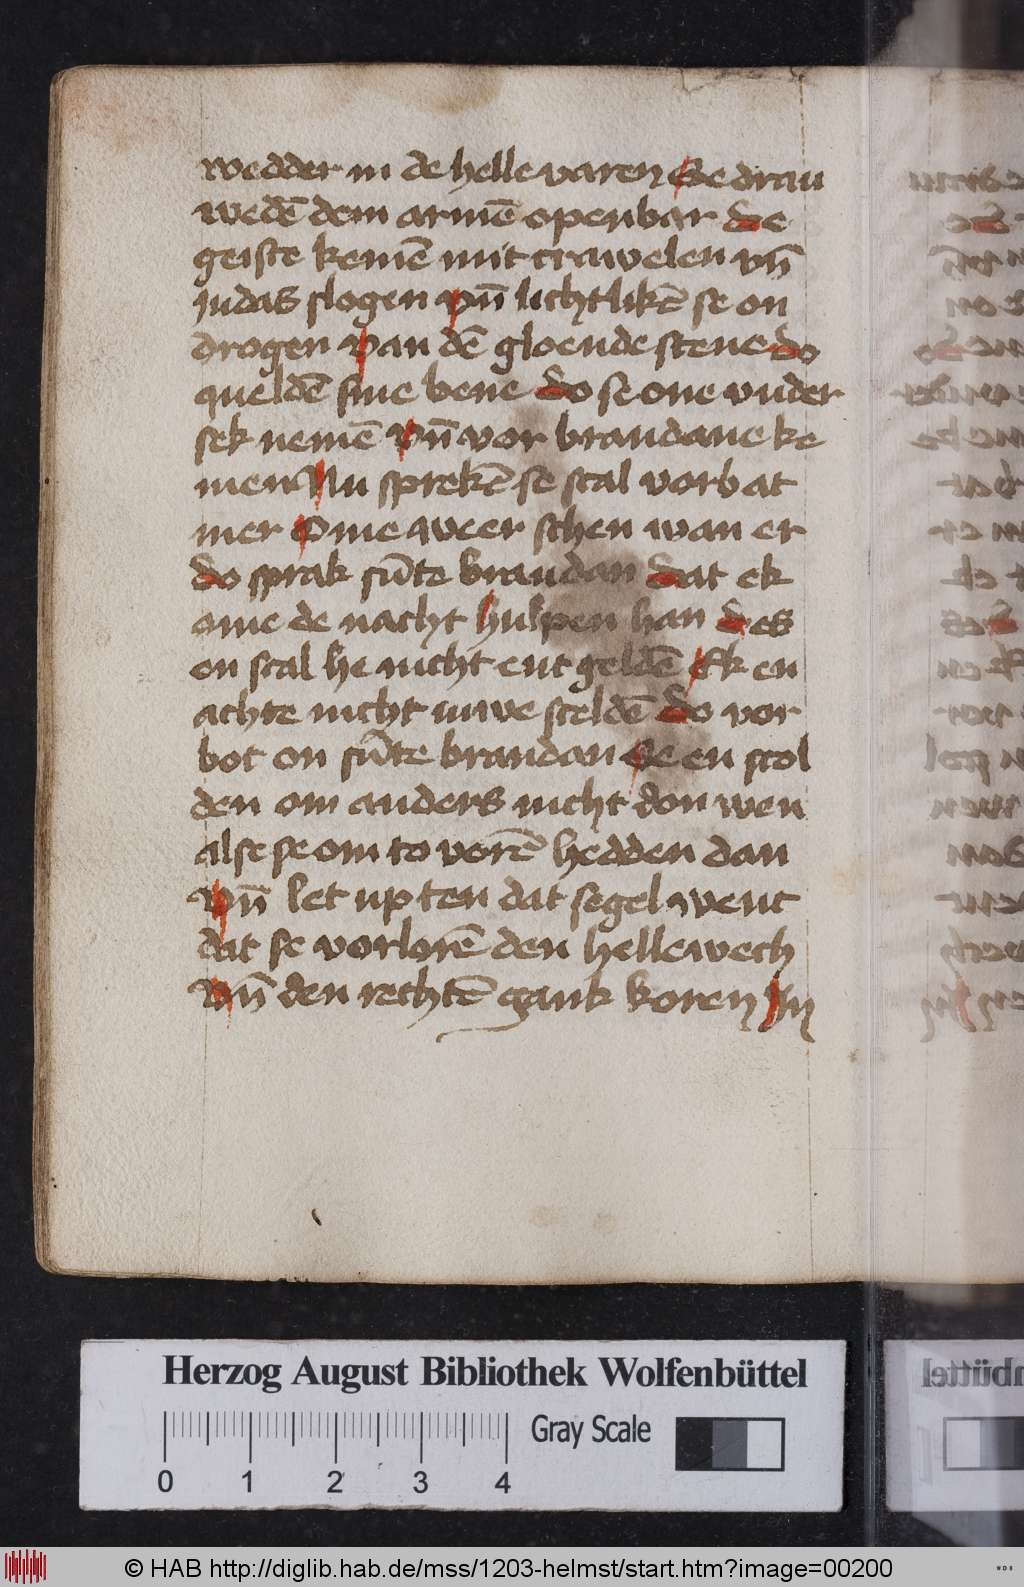 wedder in de helle varen Se drau
wedē dem armē openbar de
geiste kemē mit crawelen vn̄
iudas slogen vn̄ lichtlikē se on
drogen van dē gloende stene do
queldē sine bene do se one vnder
sek nemē vn̄ vor brandane ke
men Nu sprekē se scal vorbat
mer Ome aveer schen wan er
do sprak sūte brandan dat ek
ome de nacht hulpen han des
en scal he nicht ent geldē Ek en
achte nicht iuwe sceldē do vor
bot on sūte brandan Se en scol
den om anders nicht don wen
alse se om to vorē hedden dan
vn̄ let up ten dat segel went
dat se vorlorē den hellewech
vn̄ den rechtē gank koren In
Herzog August Bibliothek Wolfenbüttel
0 1 2 3 4
Gray Scale
© HAB http://diglib.hab.de/mss/1203-helmst/start.htm?image=00200